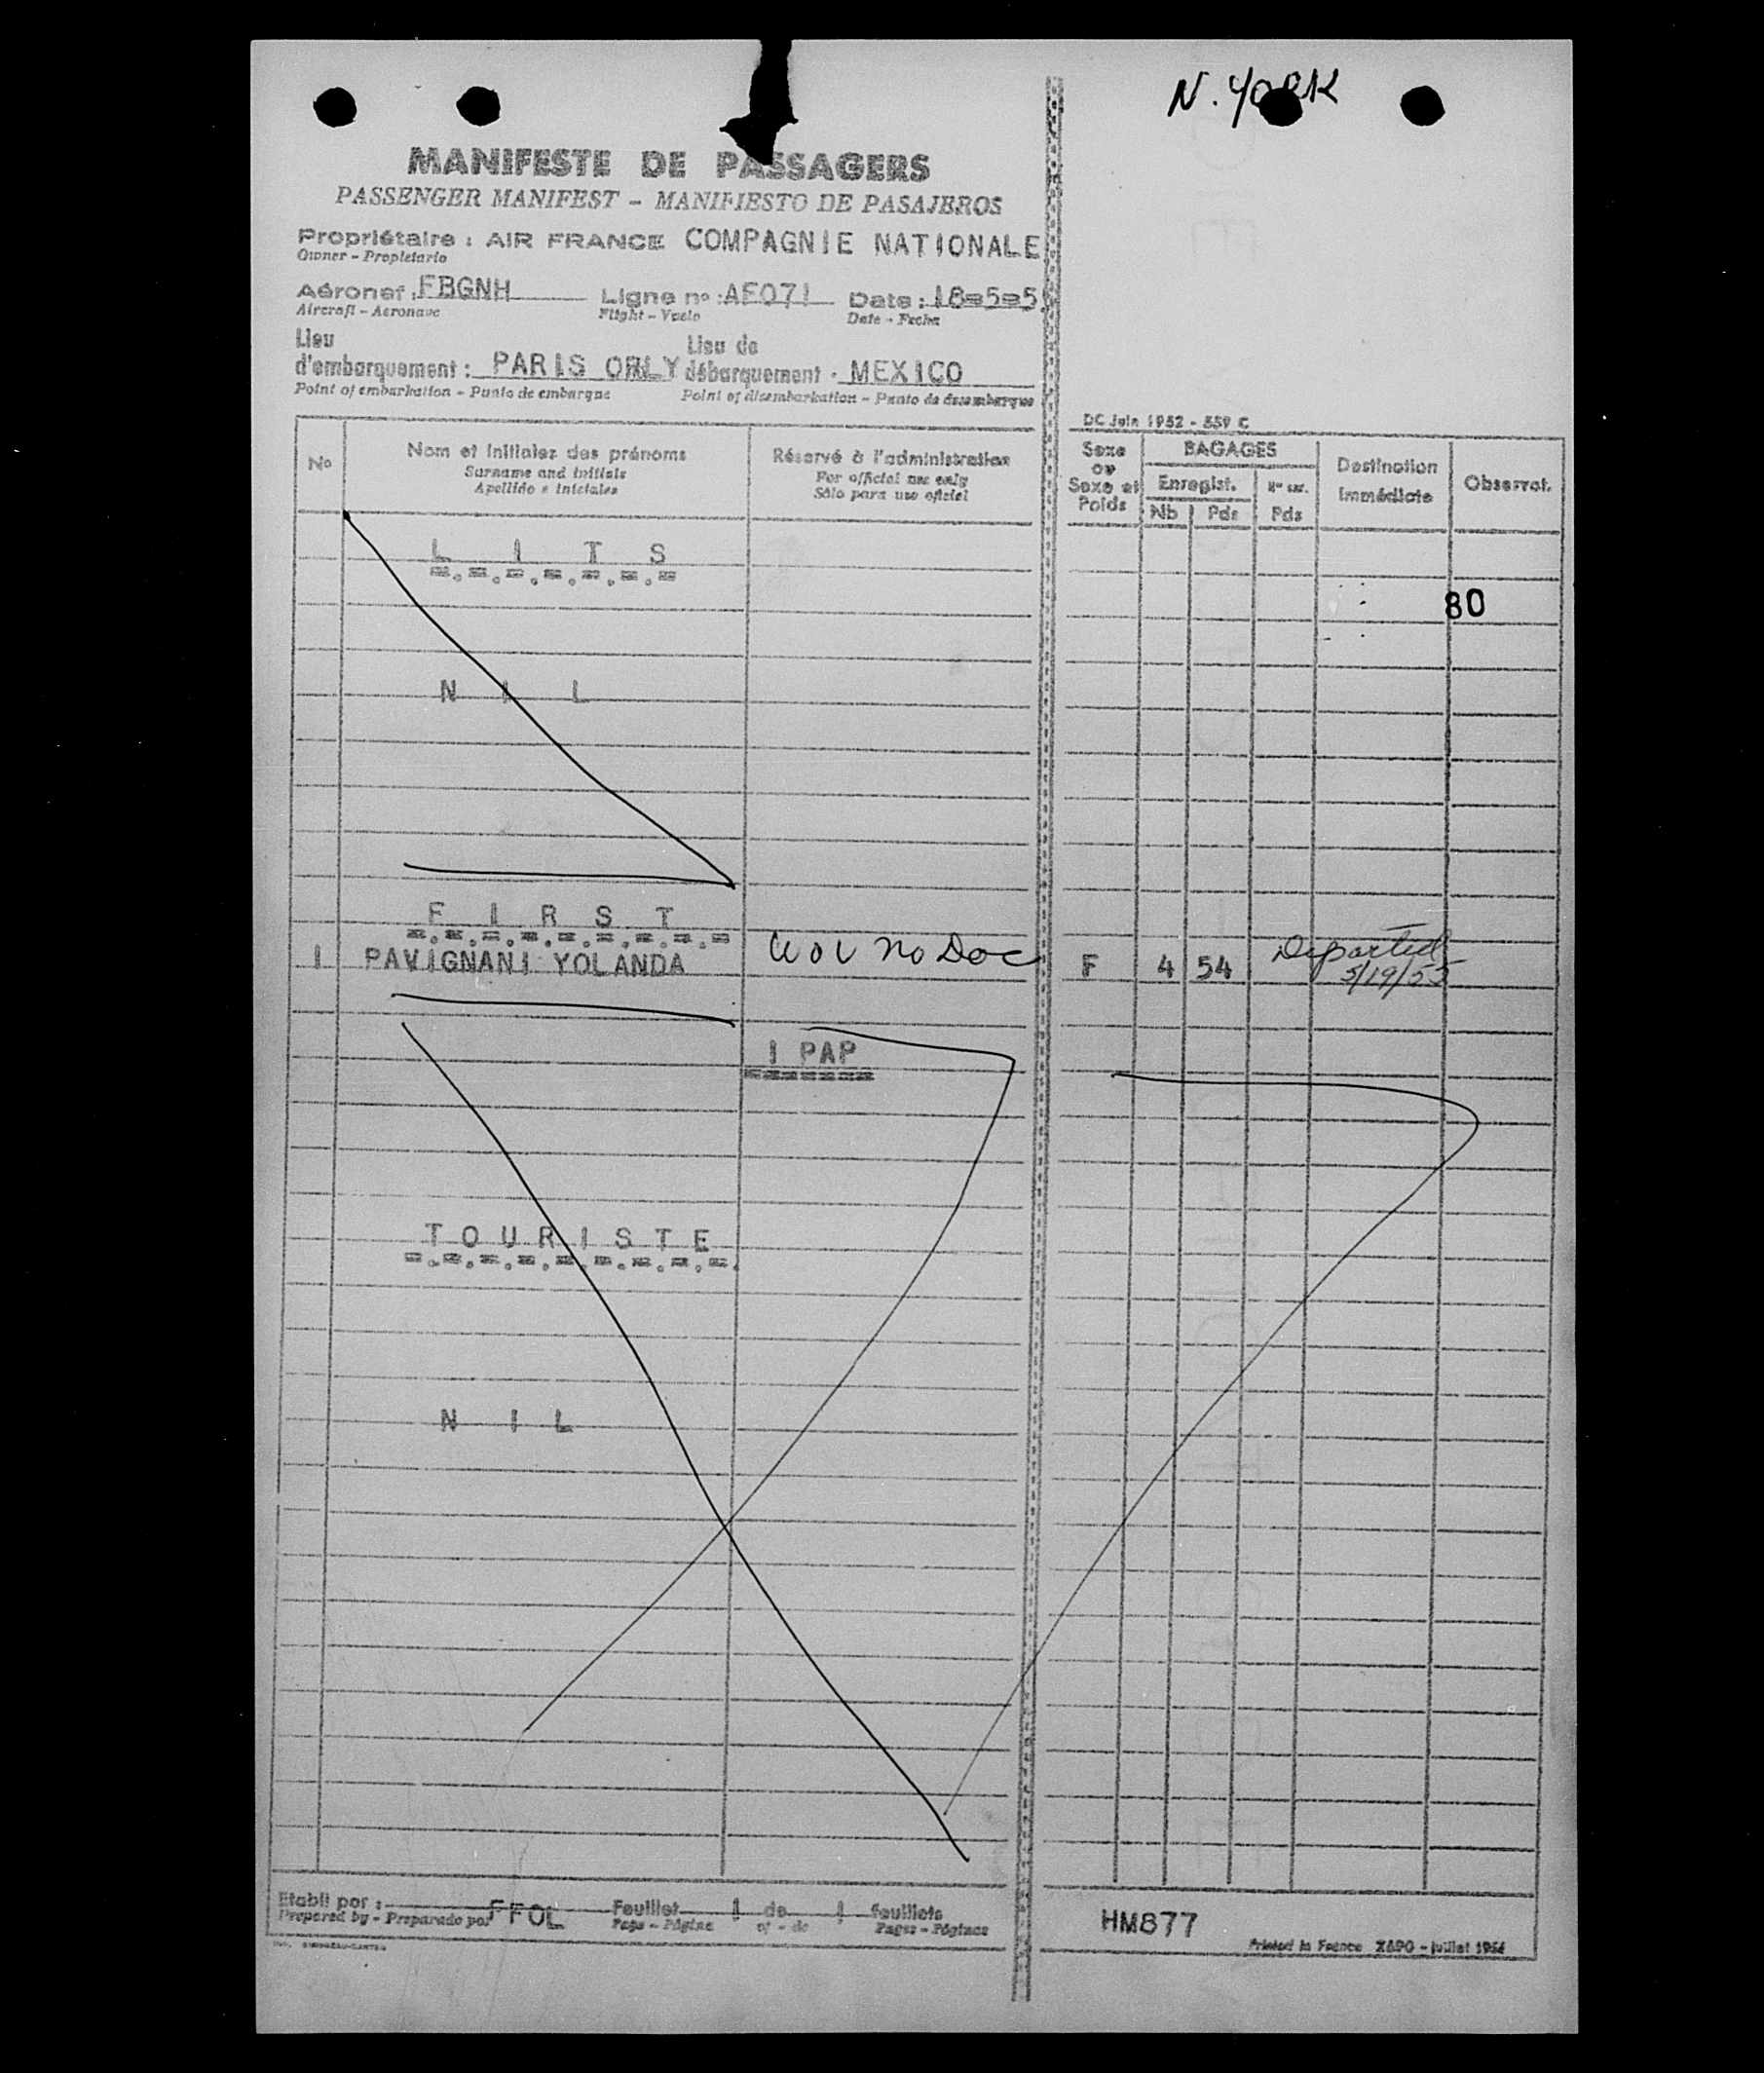 N. YORK
MANIFESTE DE PASSAGERS
PASSENGER MANIFEST - MANIFIESTO DE PASAJEROS
Propriétaire : AIR FRANCE COMPAGNIE NATIONALE
Owner - Propietario
Aéronef : FBGNH Ligne no : AF071 Date : 18=5=5
Aircraft - Aeronave Flight - Vuelo Date - Fecha
Lieu Lieu de
d'embarquement : PARIS ORLY débarquement : MEXICO
Point of embarkation - Punto de embarque Point of disembarkation - Punto de desembarque
DC Juin 1952 - 559 C
No Nom et initiales des prénoms Réservé à l'administration Sexe ou Sexe et Poids BAGAGES Destination immédiate Observat.
Surname and initials For official use only Enregist.
Apellido e iniciales Sólo para uso oficial Nb Pds Pds
L I T S
=.=.=.=.=.=.=
80
N I L
F I R S T
=.=.=.=.=.=.=.=.=
1 PAVIGNANI YOLANDA WOV No Doc F 4 54 Departed
5/19/55
1 PAP
=======
T O U R I S T E
=.=.=.=.=.=.=.=.=.
N I L
Etabli par : FFOL Feuillet 1 de 1 feuillets
Prepared by - Preparado por Page - Página of - de Pages - Páginas
HM877
Printed in France - juillet 1954